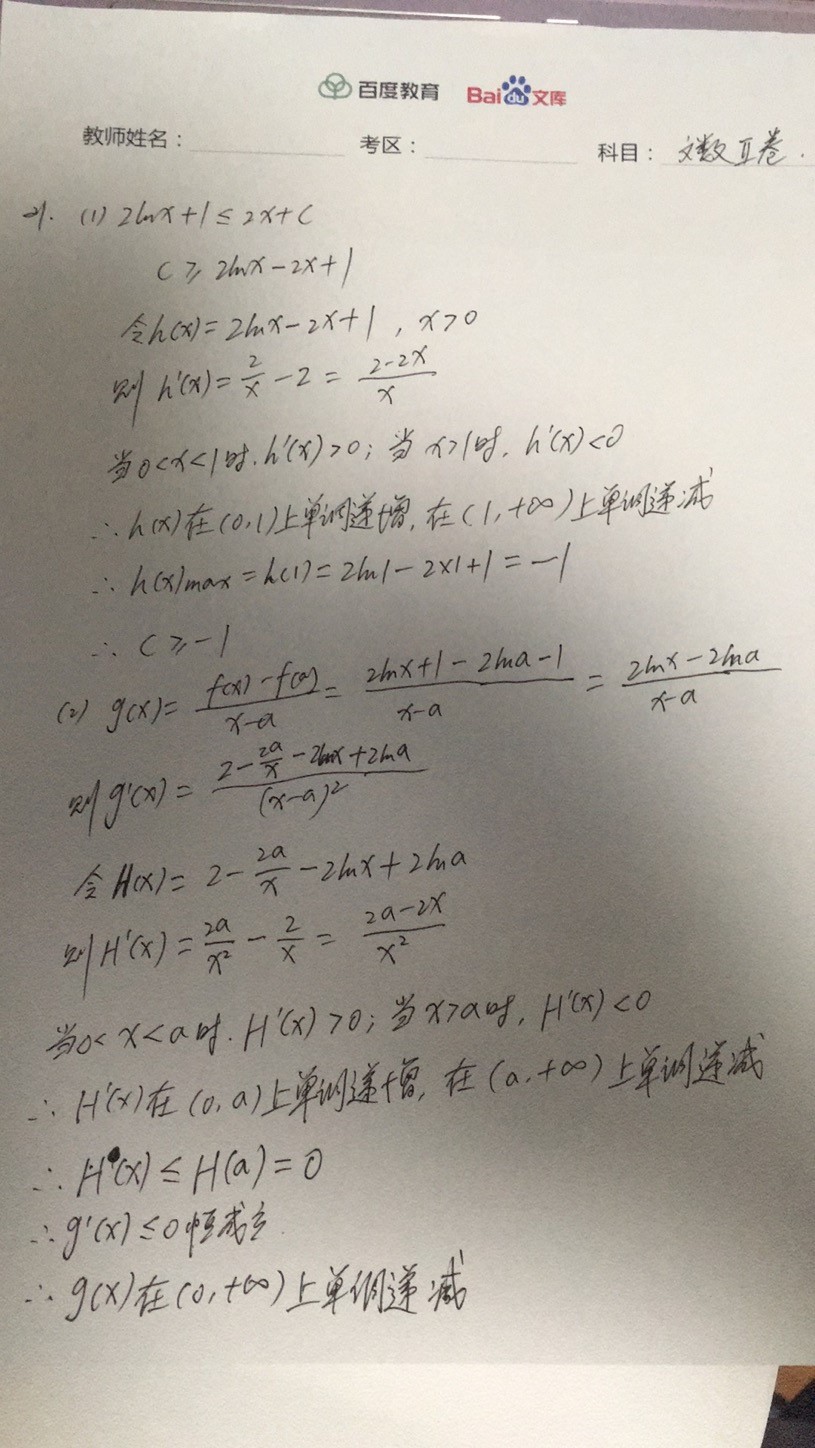 百度教育 Baidu文库
教师姓名： 考区： 科目：文数Ⅱ卷.
21. (1) 2lnx+1≤2x+c
c≥2lnx-2x+1
令h(x)=2lnx-2x+1，x>0
则h'(x)=2/x-2=(2-2x)/x
当0<x<1时，h'(x)>0；当x>1时，h'(x)<0
∴h(x)在(0,1)上单调递增，在(1,+∞)上单调递减
∴h(x)max=h(1)=2ln1-2×1+1=-1
∴c≥-1
(2) g(x)=(f(x)-f(a))/(x-a)=(2lnx+1-2lna-1)/(x-a)=(2lnx-2lna)/(x-a)
则g'(x)=(2-2a/x-2lnx+2lna)/(x-a)²
令H(x)=2-2a/x-2lnx+2lna
则H'(x)=2a/x²-2/x=(2a-2x)/x²
当0<x<a时．H'(x)>0；当x>a时，H'(x)<0
∴H'(x)在(0,a)上单调递增，在(a,+∞)上单调递减
∴H(x)≤H(a)=0
∴g'(x)≤0恒成立.
∴g(x)在(0,+∞)上单调递减